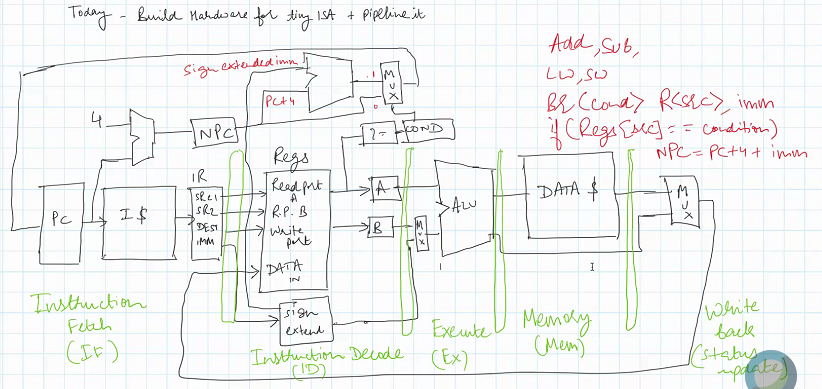 Today - Build Hardware for tiny ISA + pipeline it
Add, Sub,
LW, SW
BR <cond> R<src>, imm
if (Regs[src] == condition)
NPC = PC+4 + imm
sign extended imm
PC+4
1
0
MUX
4
NPC
?=
COND
PC
I $
IR
SRC1
SR2
DEST
IMM
Regs
Read port A
R.P. B
Write port
DATA IN
A
B
MUX
ALU
DATA $
MUX
sign extend
Instruction Fetch
(IF)
Instruction Decode
(ID)
Execute
(Ex)
Memory
(Mem)
Write back
(status update)